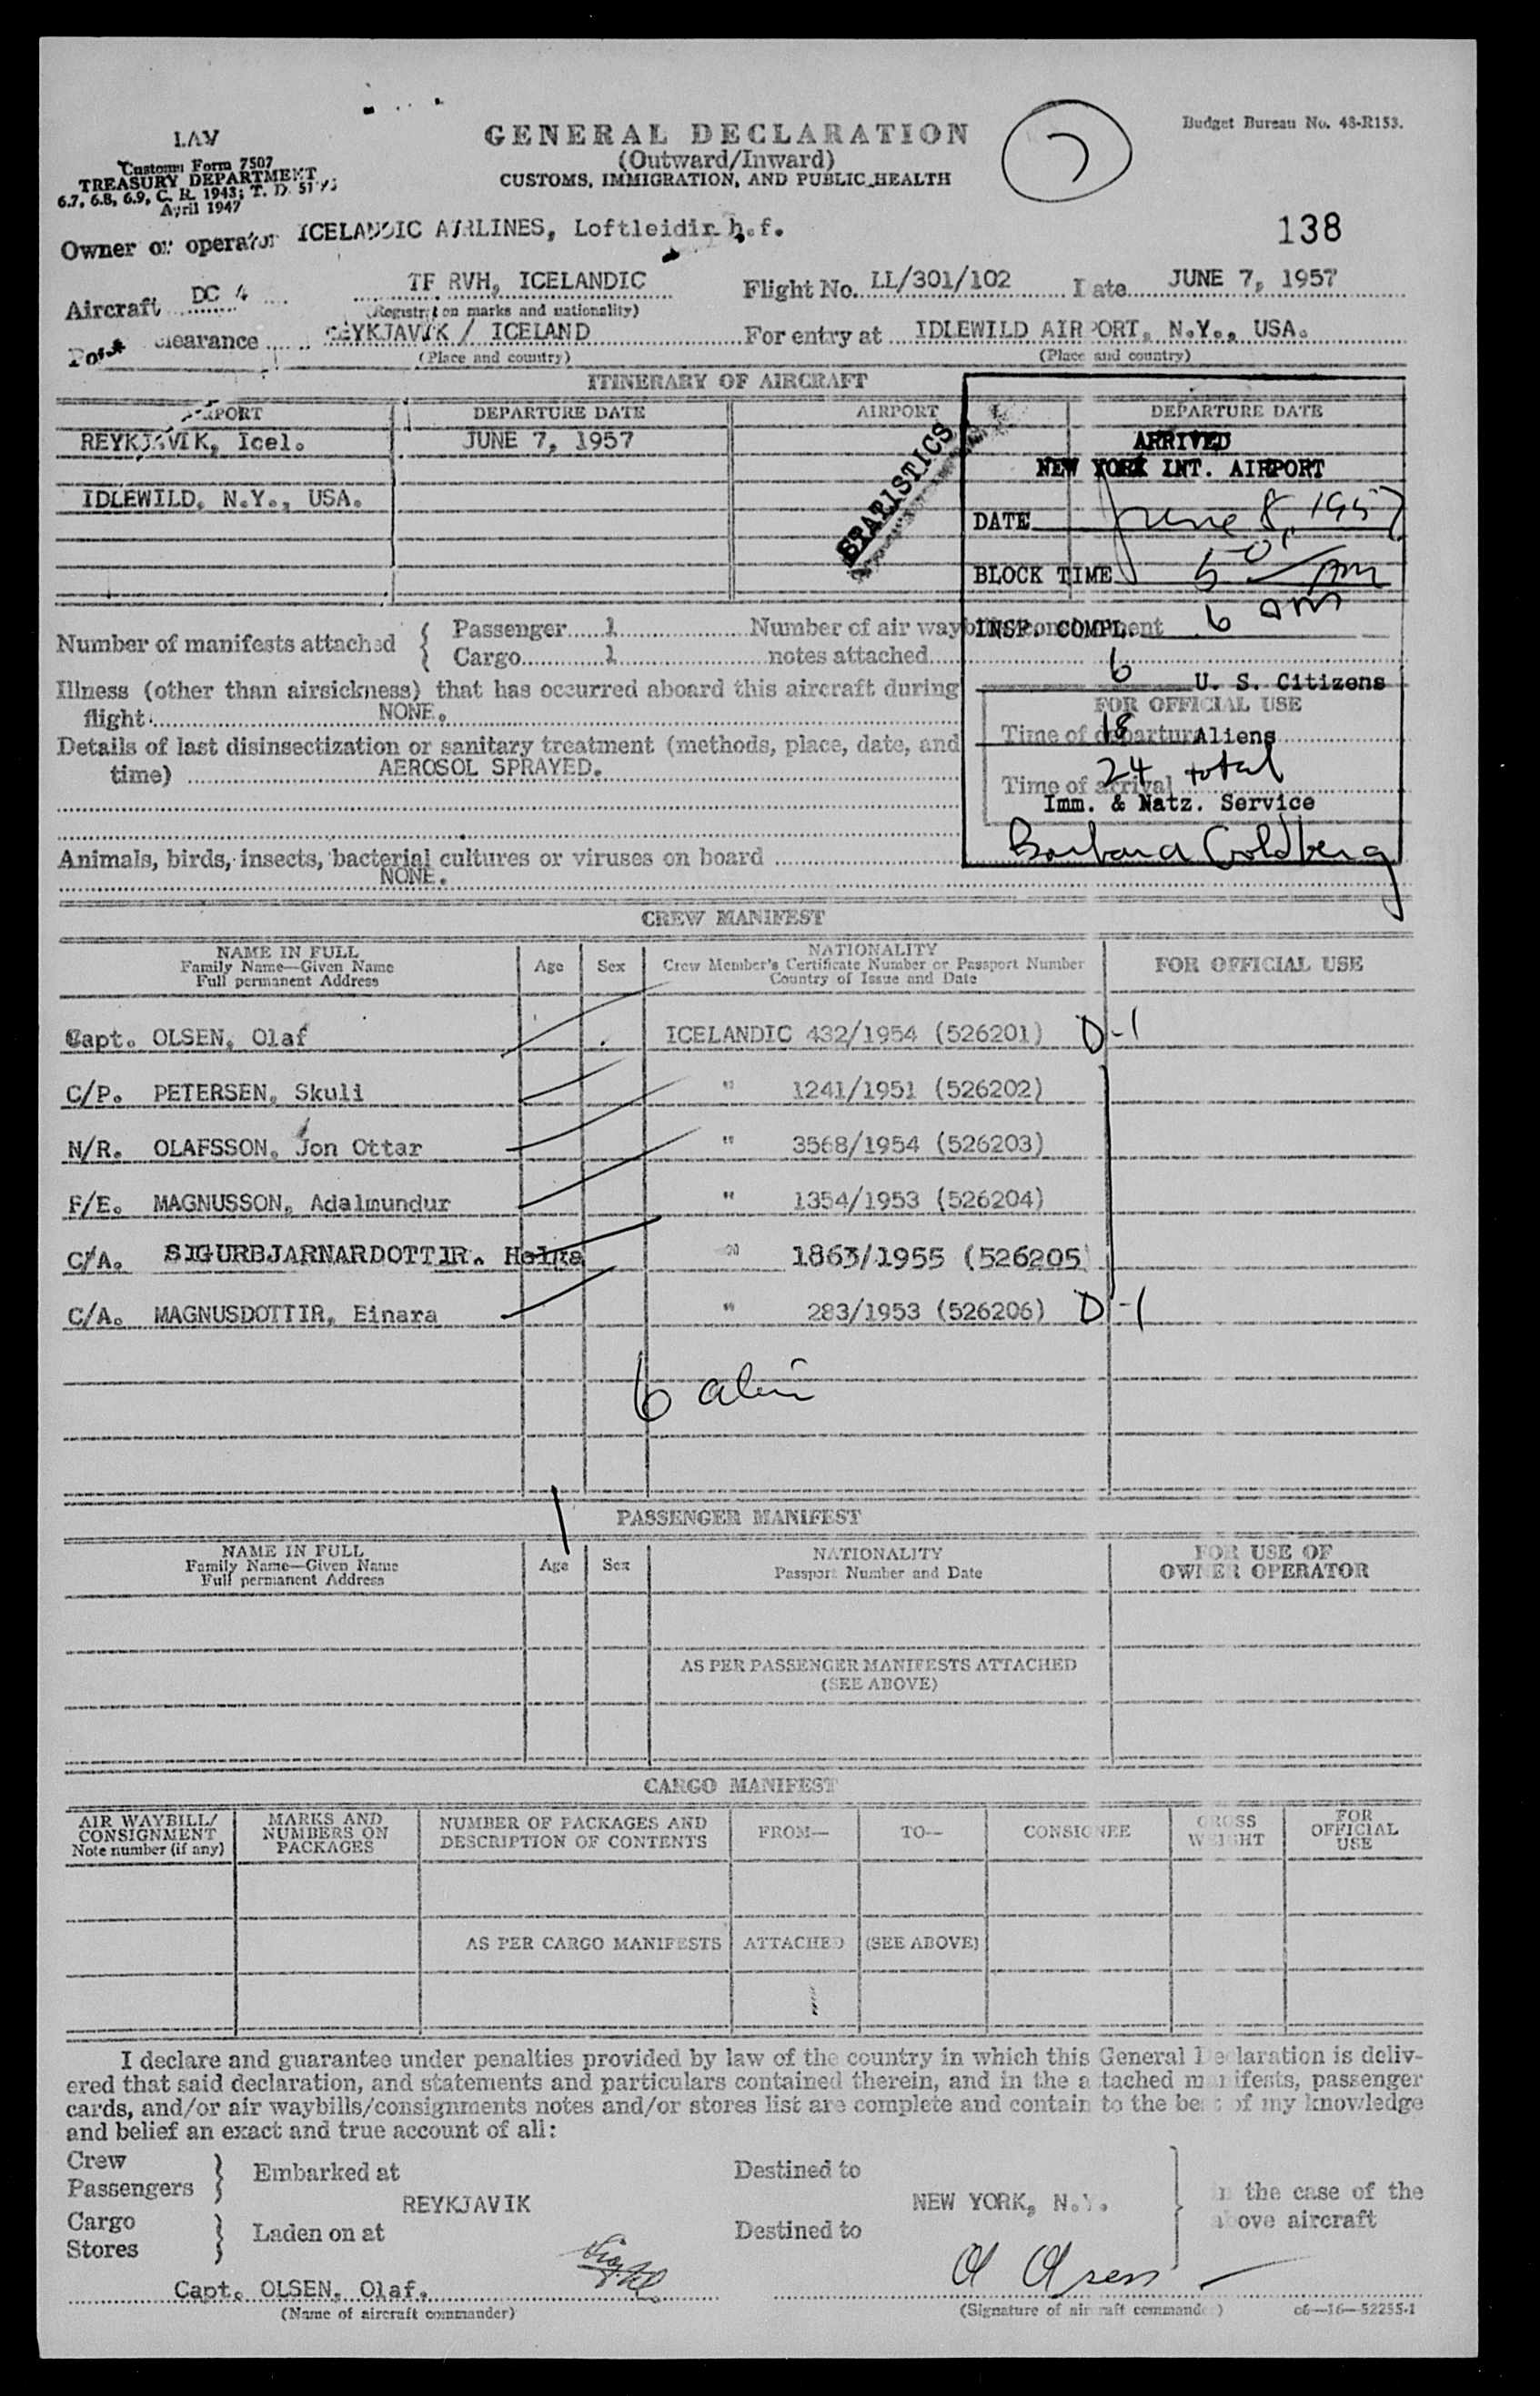 LAV
Customs Form 7507
TREASURY DEPARTMENT
6.7, 6.8, 6.9, C. R. 1943; T. D.
April 1947
GENERAL DECLARATION
(Outward/Inward)
CUSTOMS, IMMIGRATION, AND PUBLIC HEALTH
Budget Bureau No. 48-R153.
138
Owner or operator ICELANDIC AIRLINES, Loftleidir h.f.
Aircraft DC 4 TF RVH, ICELANDIC Flight No. LL/301/102 Date JUNE 7, 1957
(Registration marks and nationality)
clearance REYKJAVIK / ICELAND For entry at IDLEWILD AIRPORT, N.Y., USA.
(Place and country) (Place and country)
ITINERARY OF AIRCRAFT
AIRPORT DEPARTURE DATE AIRPORT DEPARTURE DATE
REYKJAVIK, Icel. JUNE 7, 1957
IDLEWILD, N.Y., USA.
STATISTICS
ARRIVED
NEW YORK INT. AIRPORT
DATE June 8, 1957
BLOCK TIME 5 01 AM
INSP. COMPL. 6 am
6 U. S. Citizens
18 Aliens
24 total
Imm. & Natz. Service
Barbara Goldberg
Number of manifests attached { Passenger 1 Number of air waybills/consignment
Cargo 1 notes attached
Illness (other than airsickness) that has occurred aboard this aircraft during
flight NONE.
FOR OFFICIAL USE
Time of departure
Time of arrival
Details of last disinsectization or sanitary treatment (methods, place, date, and
time) AEROSOL SPRAYED.
Animals, birds, insects, bacterial cultures or viruses on board
NONE.
CREW MANIFEST
NAME IN FULL
Family Name—Given Name
Full permanent Address
Age Sex
NATIONALITY
Crew Member's Certificate Number or Passport Number
Country of Issue and Date
FOR OFFICIAL USE
Capt. OLSEN, Olaf ICELANDIC 432/1954 (526201) D-1
C/P. PETERSEN, Skuli " 1241/1951 (526202)
N/R. OLAFSSON, Jon Ottar " 3568/1954 (526203)
F/E. MAGNUSSON, Adalmundur " 1354/1953 (526204)
C/A. SIGURBJARNARDOTTIR. Helga " 1863/1955 (526205)
C/A. MAGNUSDOTTIR, Einara " 283/1953 (526206) D-1
6 alien
PASSENGER MANIFEST
NAME IN FULL
Family Name—Given Name
Full permanent Address
Age Sex
NATIONALITY
Passport Number and Date
FOR USE OF
OWNER OPERATOR
AS PER PASSENGER MANIFESTS ATTACHED
(SEE ABOVE)
CARGO MANIFEST
AIR WAYBILL/
CONSIGNMENT
Note number (if any)
MARKS AND
NUMBERS ON
PACKAGES
NUMBER OF PACKAGES AND
DESCRIPTION OF CONTENTS
FROM— TO— CONSIGNEE
GROSS
WEIGHT
FOR
OFFICIAL
USE
AS PER CARGO MANIFESTS ATTACHED (SEE ABOVE)
I declare and guarantee under penalties provided by law of the country in which this General Declaration is deliv-
ered that said declaration, and statements and particulars contained therein, and in the attached manifests, passenger
cards, and/or air waybills/consignments notes and/or stores list are complete and contain to the best of my knowledge
and belief an exact and true account of all:
Crew
Passengers } Embarked at Destined to
REYKJAVIK NEW YORK, N.Y.
in the case of the
above aircraft
Cargo
Stores } Laden on at Destined to
Capt. OLSEN, Olaf. O Olsen
(Name of aircraft commander) (Signature of aircraft commander) c6—16—52255-1